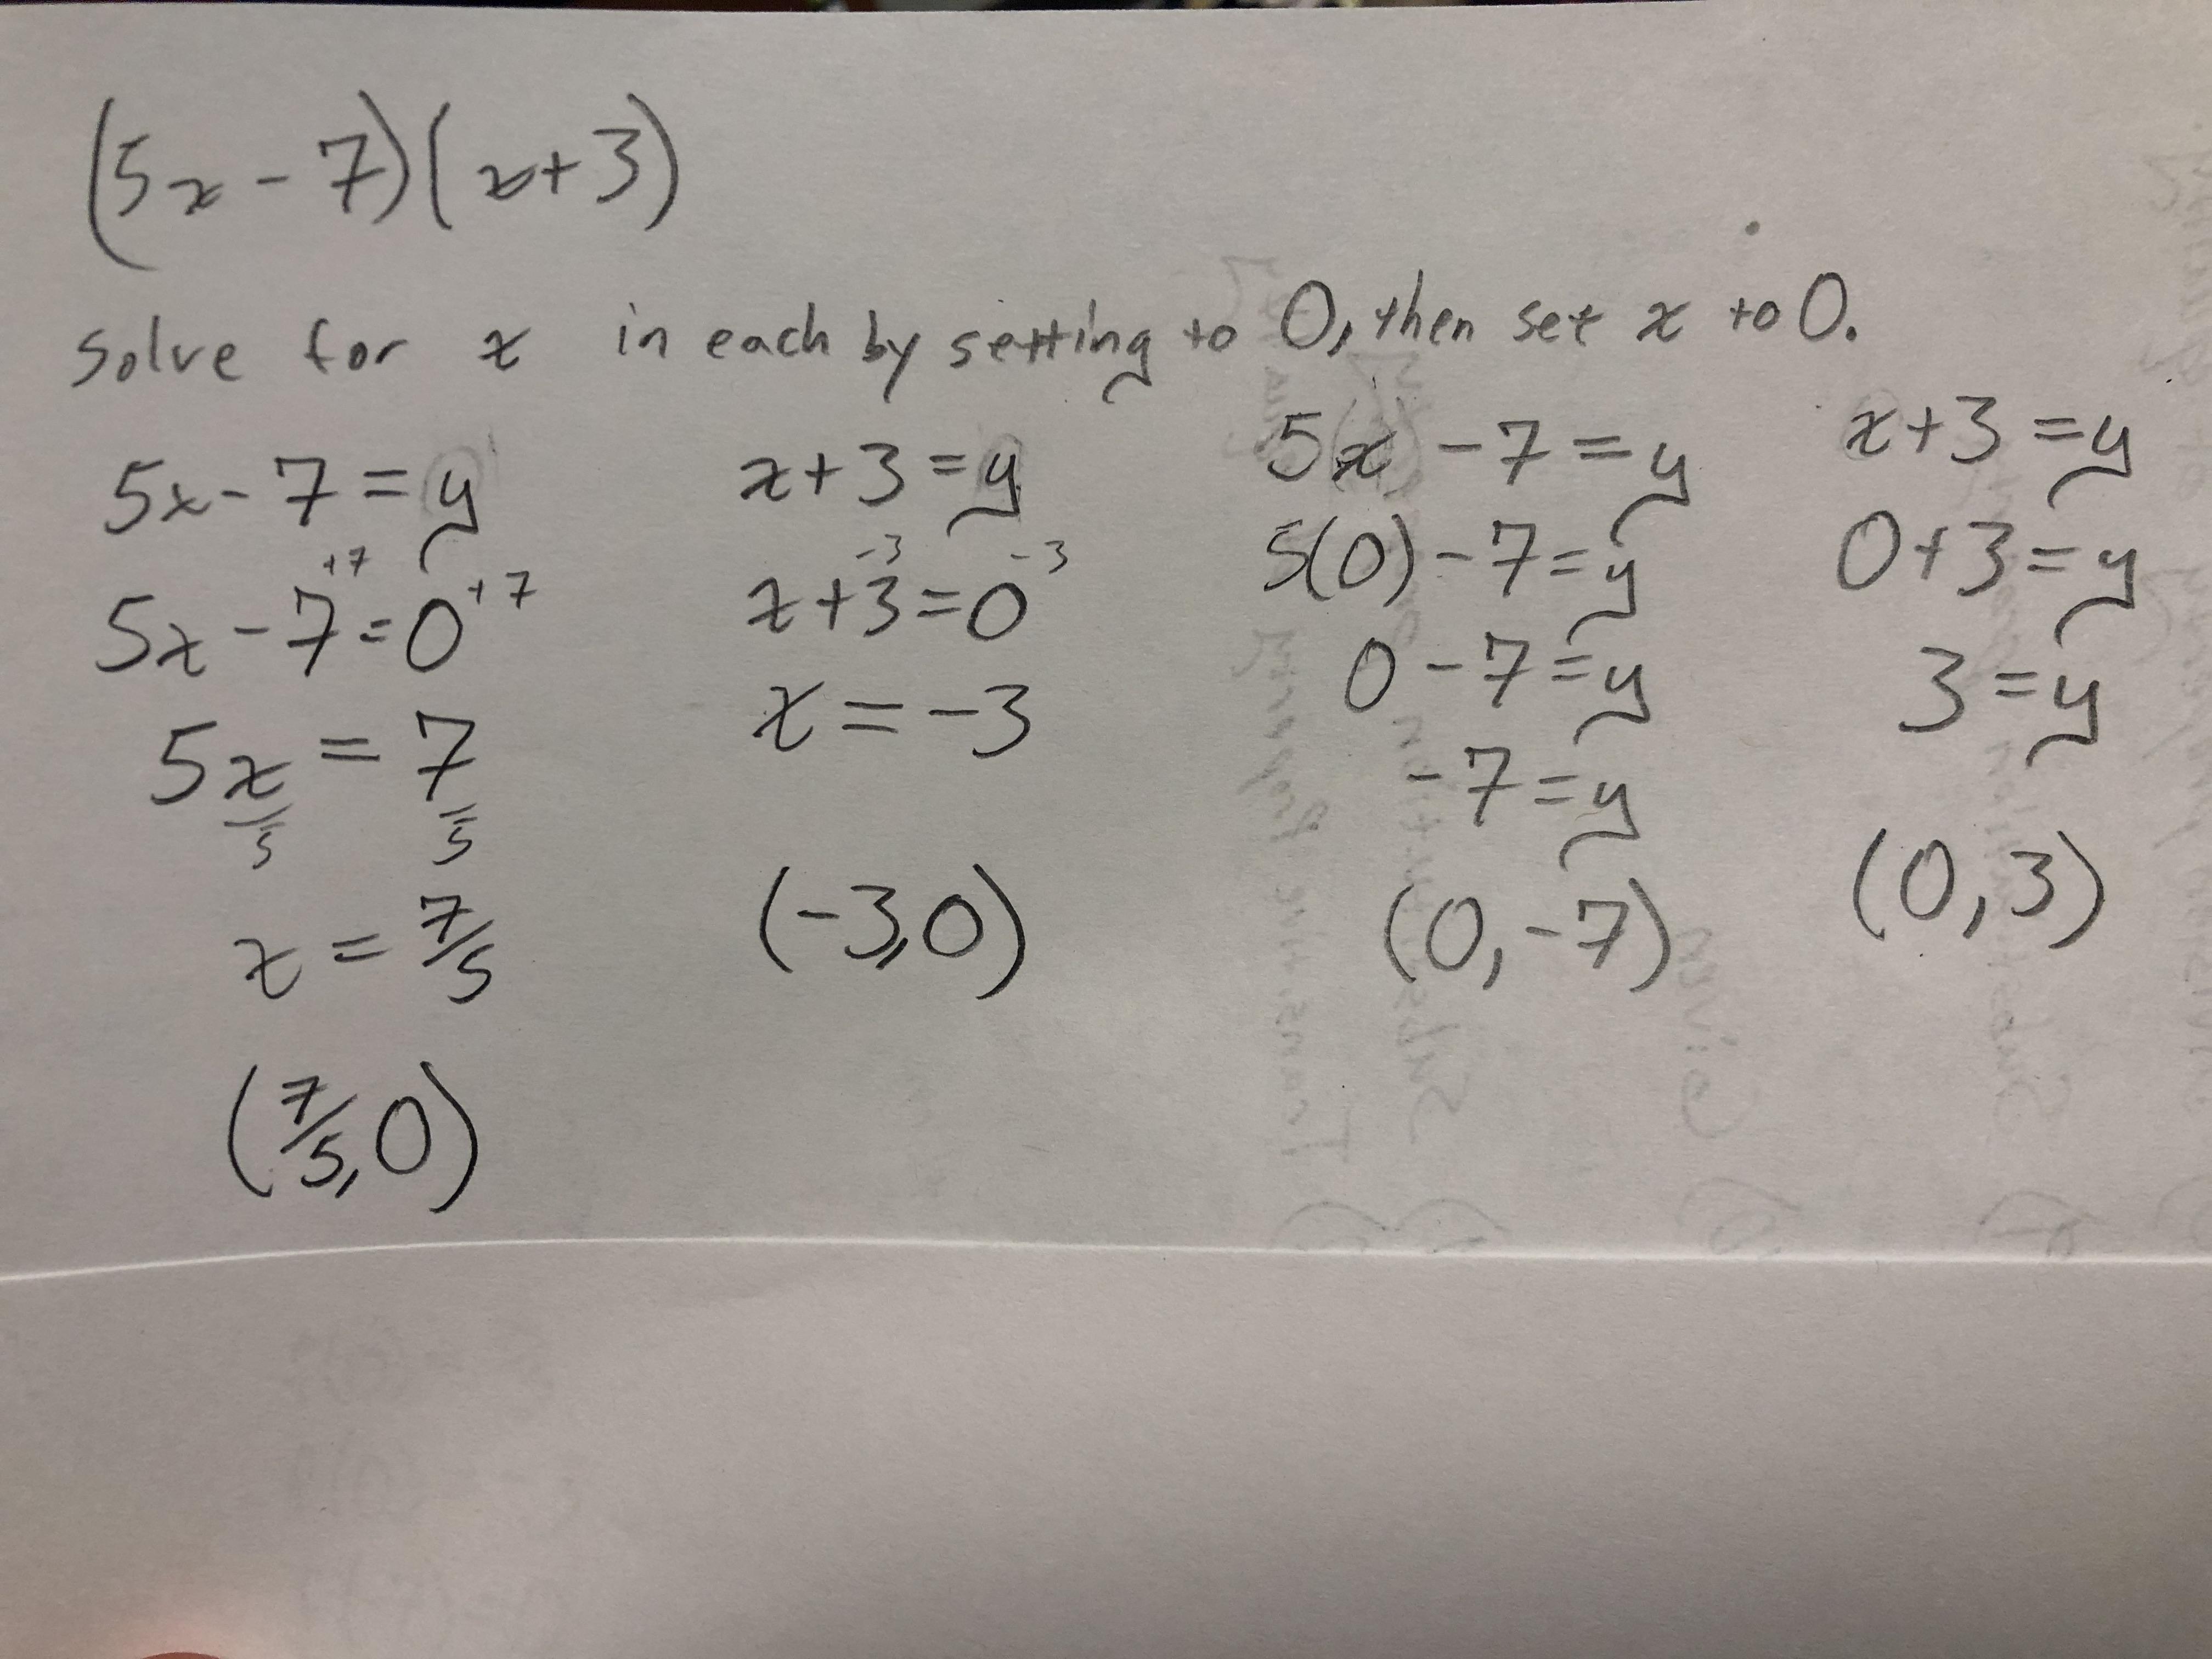 (5x-7)(x+3)
Solve for x in each by setting to 0, then set x to 0.
5x-7=y
+7
5x-7=0+7
5x=7
5 5
x=7/5
(7/5,0)
x+3=y
-3 -3
x+3=0
x=-3
(-3,0)
5x-7=y
5(0)-7=y
0-7=y
-7=y
(0,-7)
x+3=y
0+3=y
3=y
(0,3)